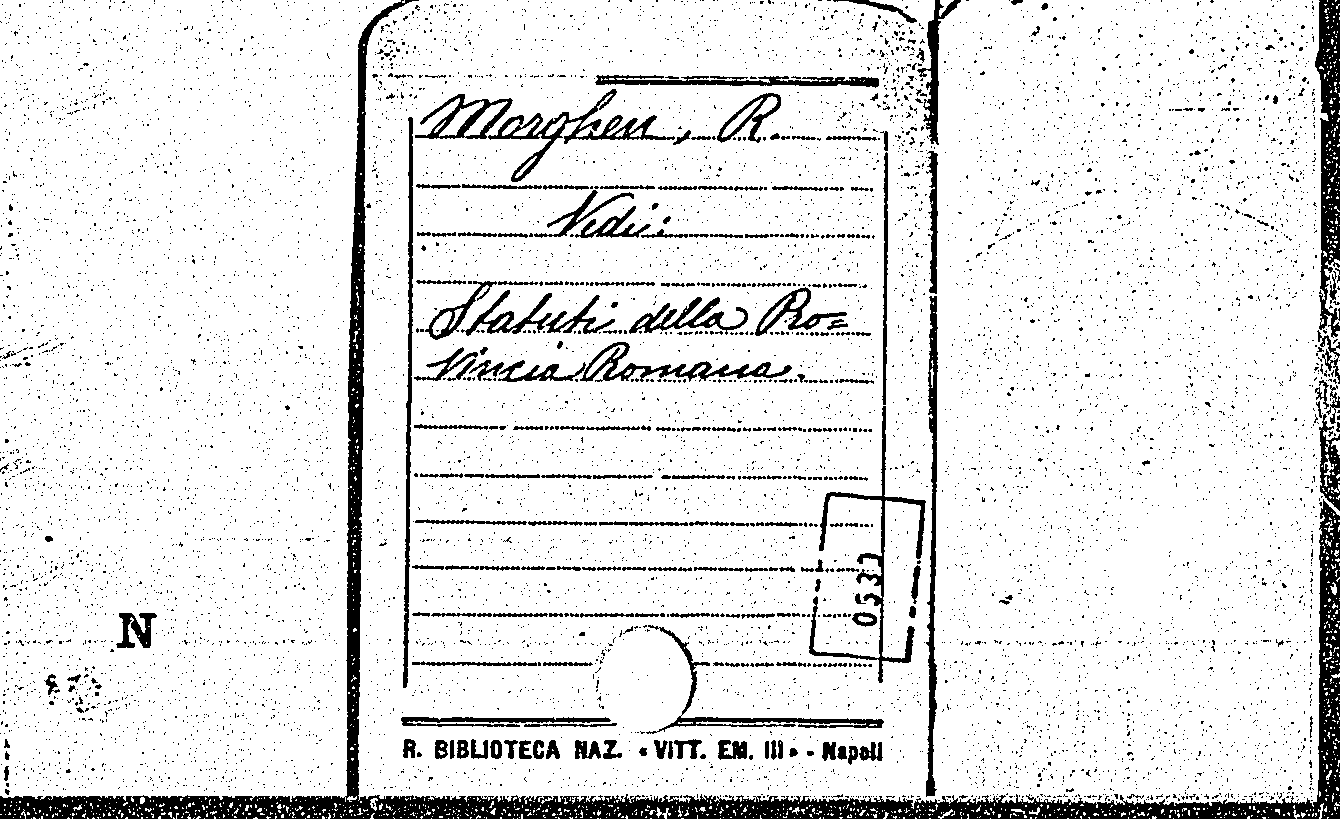 Morghen, R.
Vedi:
Statuti della Pro=
vincia Romana.
0537
N
R. BIBLIOTECA NAZ. «VITT. EM. III» - Napoli